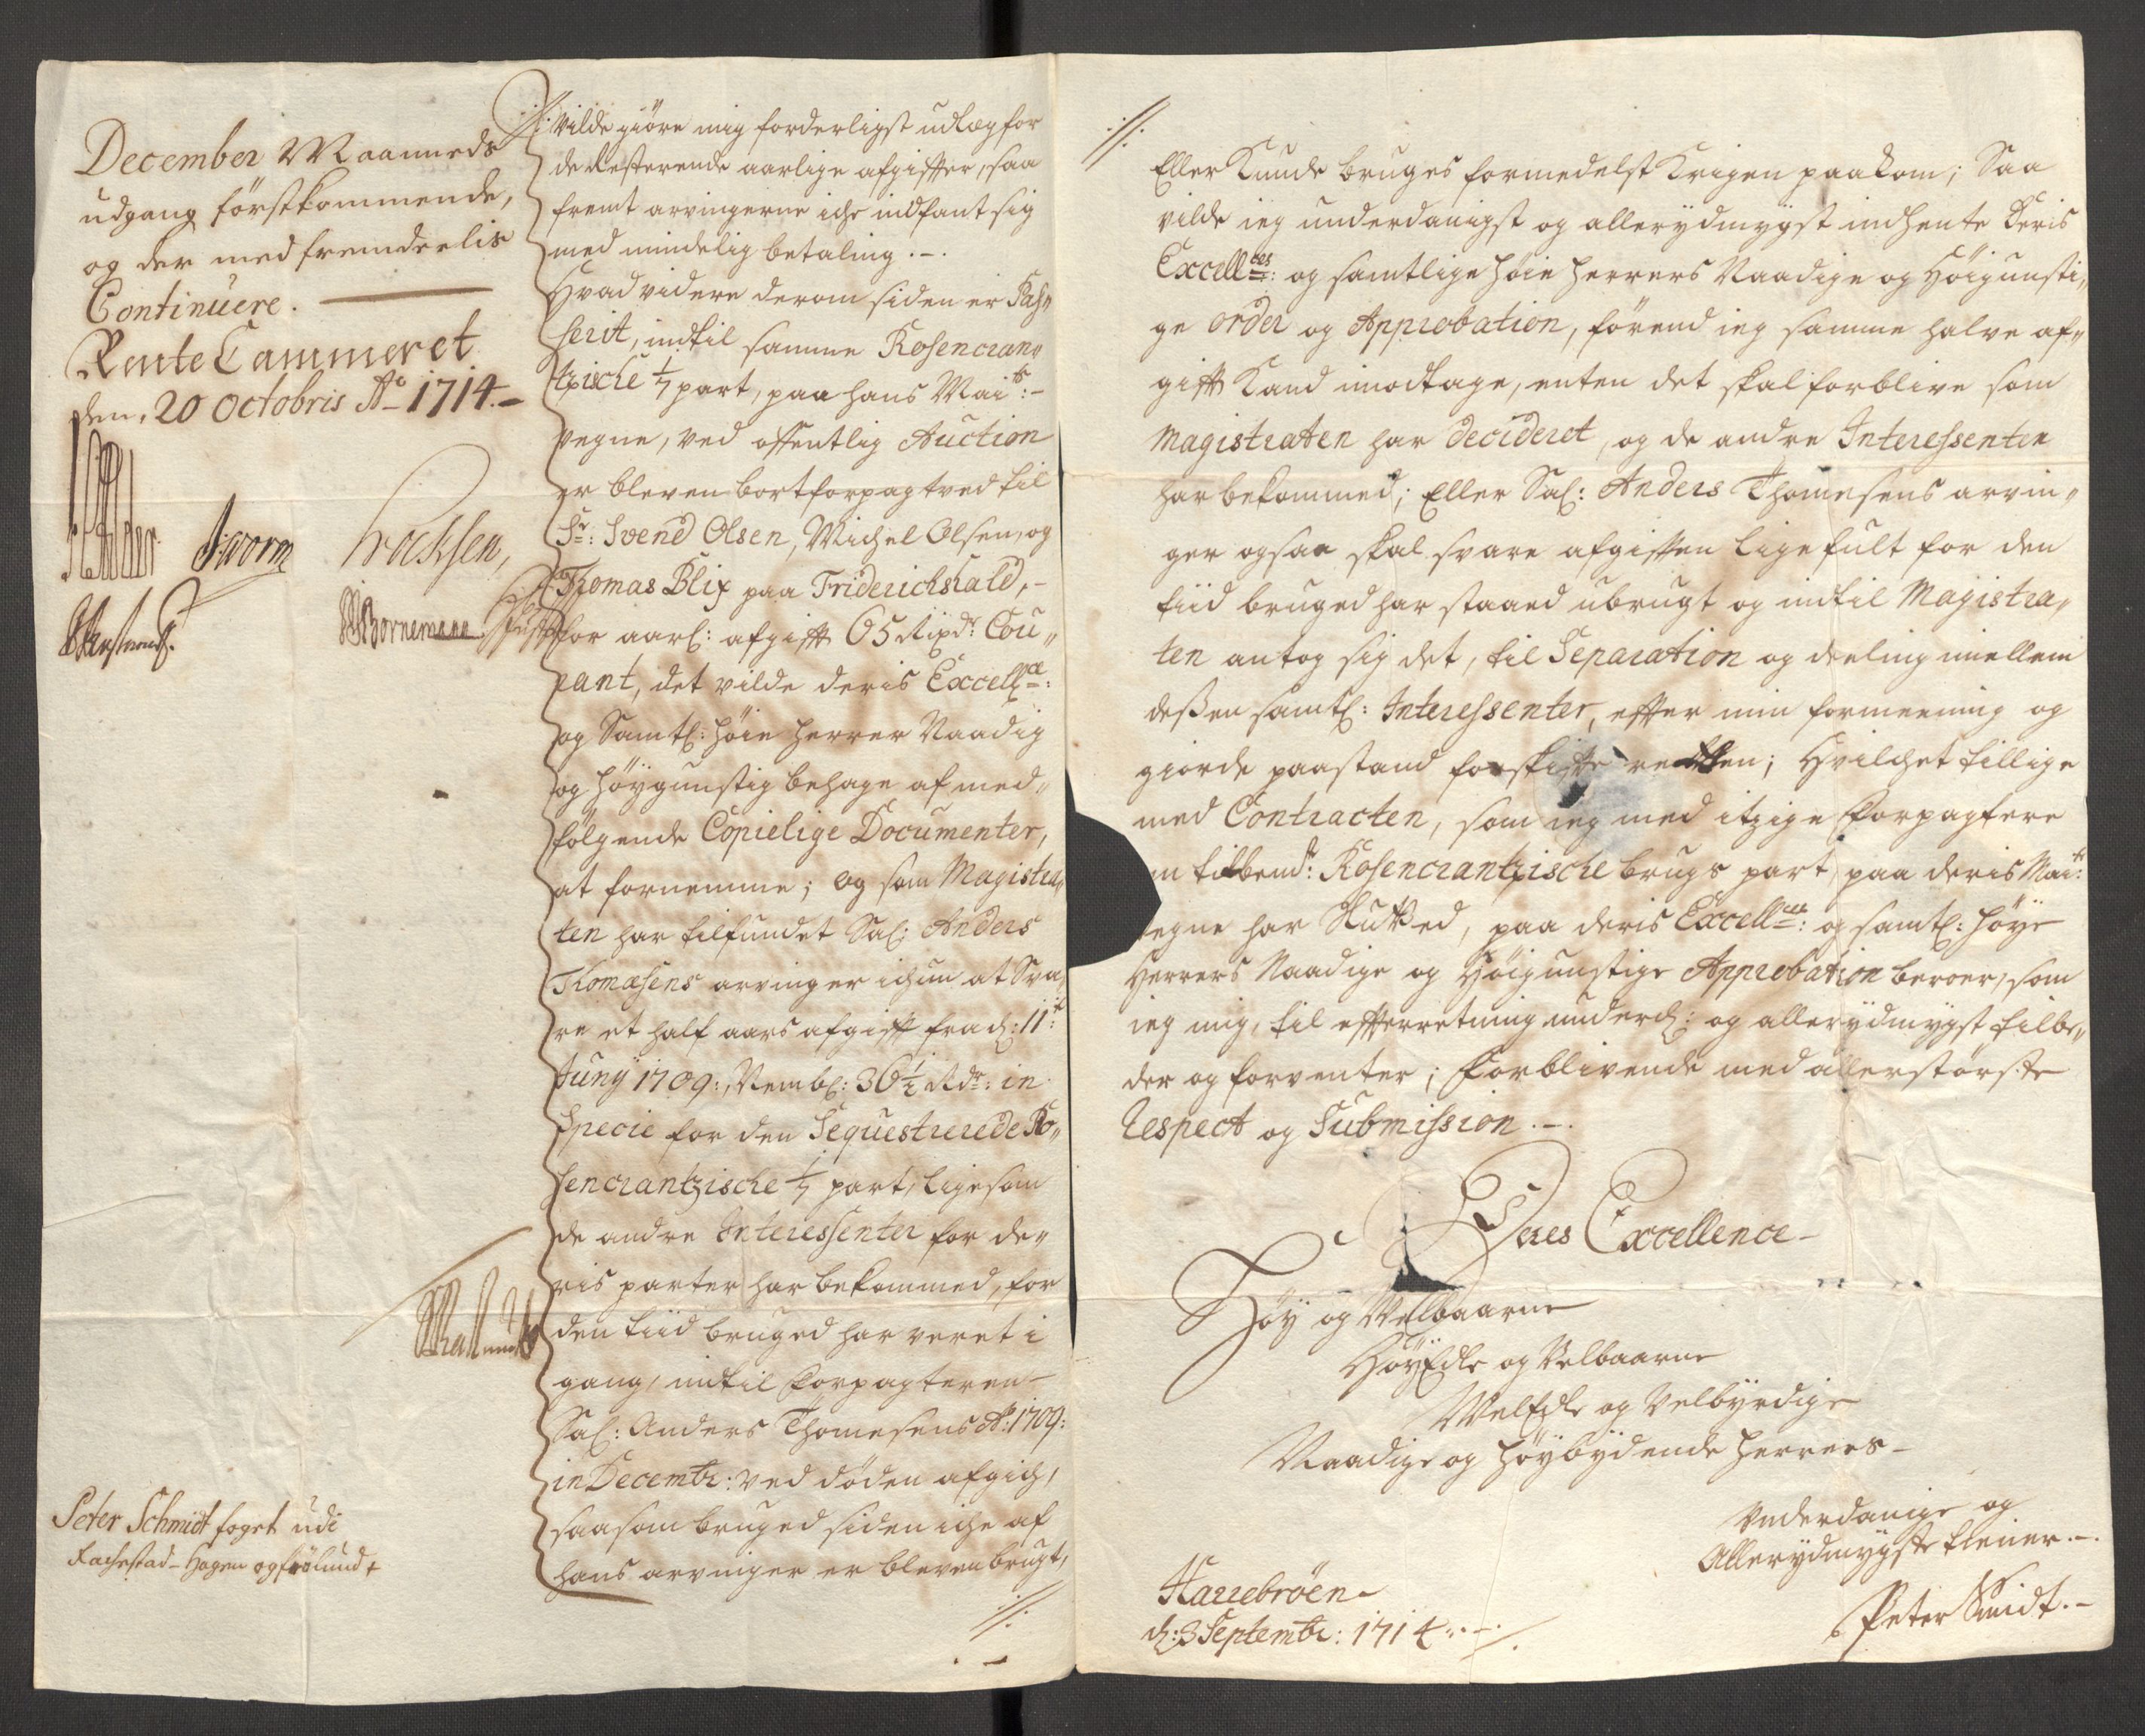 December Maaneds
udgang förstkommende,
og der med fremdeelis
Continuere.
Rente Cammeret
den. 20 Octobris Ao 1714.
JWorm
WBornemann
Peter Schmidt foget udi
Rachestad - Hagen og frölund
./. vilde giöre mig forderligst udlæg for
de Resterende aarlige afgiffter, saa
fremt arvingerne iche indfant sig
med mindelig betaling.-.
Hvad videre derom siden er Pas-
serit, indtil samme Rosencran-
tzische 1/7 part, paa hans Maits:-
vegne, ved offentlig Auction
er bleven bortforpagtved til
Sr: Svend Olsen, Michel Olsen, og
Thomas Blix paa Friderichshald,-
for aarl: afgifft 65 Rixdr Cou-
rant, det vilde deris Excellce:
og Samtl: höie Herrer Naadig
og höygunstig behage af med-
fölgende Copielige Documenter,
at fornemme; og som Magistra-
ten har tilfundet Sal: Anders
Thomæsens arvinger ichun at Sva-
re et half aars afgifft fra d: 11te:
Juny 1709:, Nembl: 36½ Rdr: in
Specie for den Sequestrerede Ro-
sencrantzische 1/7 part, ligesom
de andre Interessenter for de-
ris parter har bekommed, for
den tiid bruged har veret i
gang, indtil Forpagteren-
Sal: Anders Thomesens Ao: 1709:
in Decembr: ved döden afgich,
saasom bruged siden iche af
hans arvinger er bleven brugt,
./.
./.
Eller Kunde bruges formedelst Krigen paakom; Saa
vilde ieg underdanigst og allerydmygst indhente Deris
Excellces: og samtlige höie Herrers Naadige og Höigunsti-
ge order og Approbation, förend ieg samme halve af-
gifft Kand imodtage, enten det skal forblive som
Magistraten har decideret, og de andre Interessenter
har bekommed; Eller Sal: Anders Thomesens arvin-
ger ogsaa skal svare afgifften lige fult for den
tiid bruged har staaed ubrugt og indtil Magistra-
ten antog sig det, til Separation og deeling imellem
dessen samtl: Interessenter, effter min formeening og
giorde paastand for skiffte retten; Hvilchet tillige
med Contracten, som ieg med itzige Forpagtere
Rosencrantzische brugs part paa deris Maits:
vegne har Sluttet, paa deris Excellces: og samtl: höye
Herrers Naadige og Höigunstige Approbation beroer, som
ieg mig, til effterretning underd: og allerydmygst tilbe-
der og forventer; Forblivende med allerstörste
Respect og Submission.-.
Deres Excellence-
Höy og Velbaarne
HöyEdle og Velbaarne
WelEdle og Velbyrdige
Naadige og höybydende Herrers-
Underdanige og
Allerydmygste tiener.-.
Peter Smidt.-
Harrebröen-
d: 3 Septembr: 1714.-.